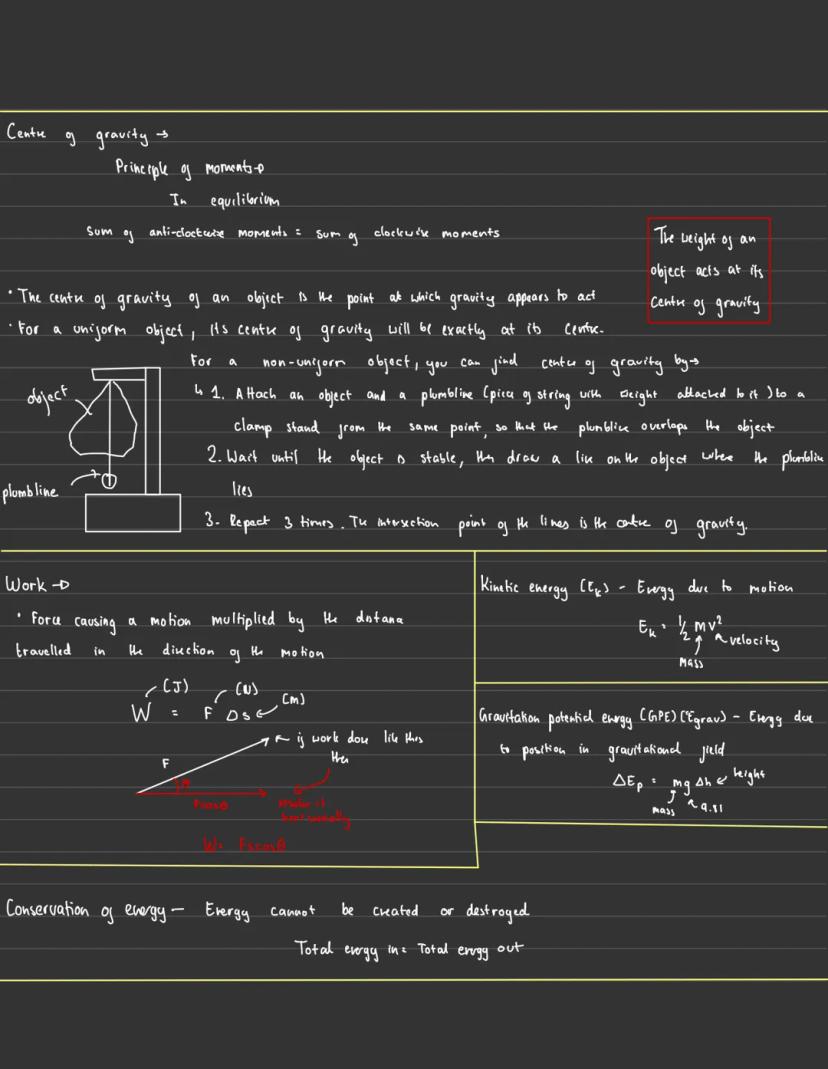 Centre of gravity →
Principle of moments →
In equilibrium
Sum of anti-clockwise moments = sum of clockwise moments
The weight of an
object acts at its
Centre of gravity
• The centre of gravity of an object is the point at which gravity appears to act
• For a uniform object, its centre of gravity will be exactly at its centre.
For a non-uniform object, you can find centre of gravity by →
↳ 1. Attach an object and a plumbline (piece of string with weight attached to it) to a
clamp stand from the same point, so that the plumbline overlaps the object
2. Wait until the object is stable, then draw a line on the object where the plumbline
lies
3. Repeat 3 times. The intersection point of the lines is the centre of gravity.
object
plumbline
Work →
• Force causing a motion multiplied by the distance
travelled in the direction of the motion
(J) (N) (m)
W = F Δs
F
if work done like this
then
θ
Fcosθ
horizontally
W= Fscosθ
Kinetic energy (Ek) - Energy due to motion
Ek = 1/2 mv²
velocity
mass
Gravitation potential energy (GPE) (Egrav) - Energy due
to position in gravitational field
ΔEp = mg Δh height
mass 9.81
Conservation of energy - Energy cannot be created or destroyed
Total energy in = Total energy out